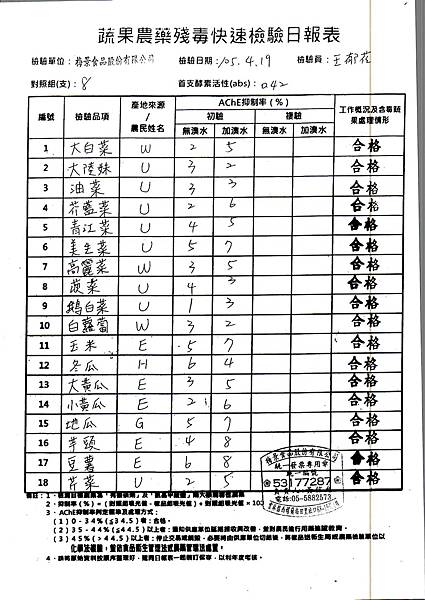 蔬果農藥殘毒快速檢驗日報表
檢驗單位：梅景食品股份有限公司 檢驗日期：105.4.19 檢驗員：王郁茹
對照組(支)：8 首支酵素活性(abs)：0.42
編號 檢驗品項 產地來源/農民姓名 AChE抑制率(%) 工作概況及含毒蔬果處理情形
初驗 複驗
無溴水 加溴水 無溴水 加溴水
1 大白菜 W 2 5 合格
2 大陸妹 U 3 2 合格
3 油菜 U 3 3 合格
4 芥藍菜 U 2 6 合格
5 青江菜 U 4 5 合格
6 美生菜 U 5 7 合格
7 高麗菜 W 3 5 合格
8 菠菜 U 4 3 合格
9 鵝白菜 U 1 3 合格
10 白蘿蔔 W 3 2 合格
11 玉米 E 5 7 合格
12 冬瓜 H 6 4 合格
13 大黃瓜 E 3 5 合格
14 小黃瓜 E 2 6 合格
15 地瓜 G 5 7 合格
16 芋頭 E 4 8 合格
17 豆薯 E 6 8 合格
18 芹菜 U 2 5 合格
梅景食品股份有限公司
統一發票專用章
統一編號
53177287
電話:05-5882573
3・AChE抑制率判定標準及處理方式：
(1) 0 - 34% (≦34.5) 者：合格。
(2) 35 - 44% (≦44.5) 以上者：
(3) 45% (＞44.5) 以上者：